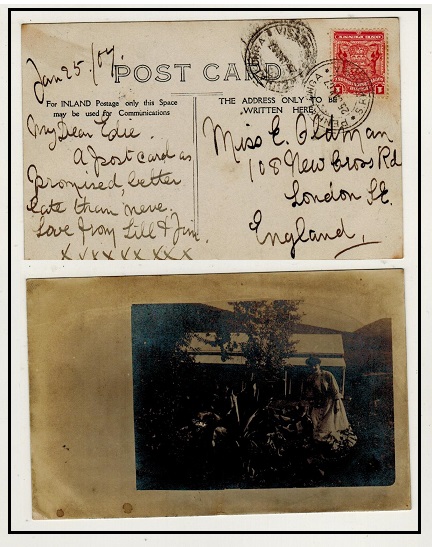 Jan 25/07.
POST CARD
For INLAND Postage only this Space
may be used for Communications
THE ADDRESS ONLY TO BE
WRITTEN HERE
My Dear Edie.
A postcard as
promised, better
late than neve.
Love from Lill & Jim.
x x x x x x x x x
Miss E. Oldman.
108 New Cross Rd
London S.E.
England,